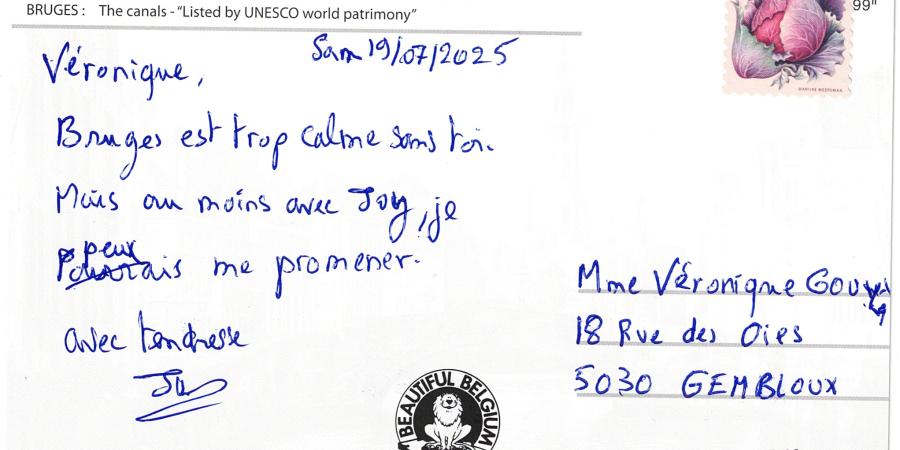 BRUGES : The canals - "Listed by UNESCO world patrimony"
99"
MARIJKE MEERSMAN
Sam 19/07/2025
Véronique,
Bruges est trop calme sans toi.
Mais au moins avec Joy, je
peux
me promener.
avec tendresse
Mme Véronique
18 Rue des Oies
5030 GEMBLOUX
BEAUTIFUL BELGIUM